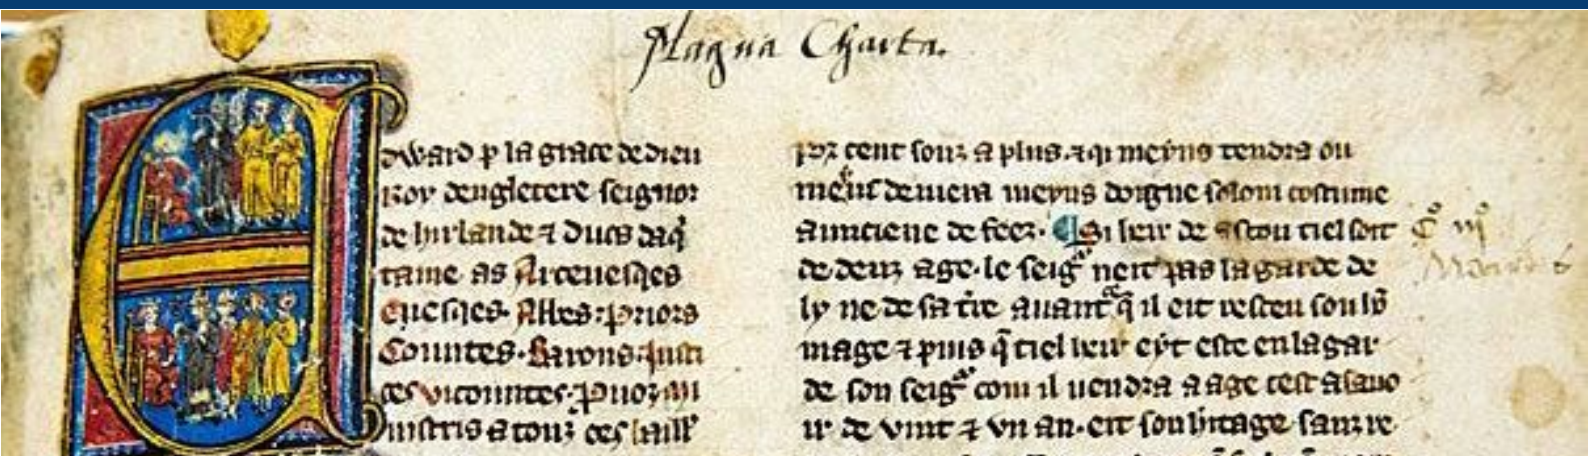 Magna Charta.
Edward p la grace de dieu
Roy dengletere seignor
de hirlande ⁊ ducs daq̄
taine as Arceuesqes
Euesqes. Abbes. priors
Countes. Barons. Justi
ces vicountes. Prouoz mi
nistris a touz ces baill
por cent souz a plus. ⁊ qi meyns tendra ou
meins deuera meyns doigne solom costume
aunciene de feez. ¶ Si heir de ascou tiel soit
de deinz age. le seigr neit pas la garde de
ly ne de sa tre auant q̄ il eit resceu son ho
mage ⁊ puis q̄ tiel heir eyt este en la gar
de son seigr com il uendra a age cest asauo
ir de vint ⁊ vn an. eit son hitage sanz re
Co iijo